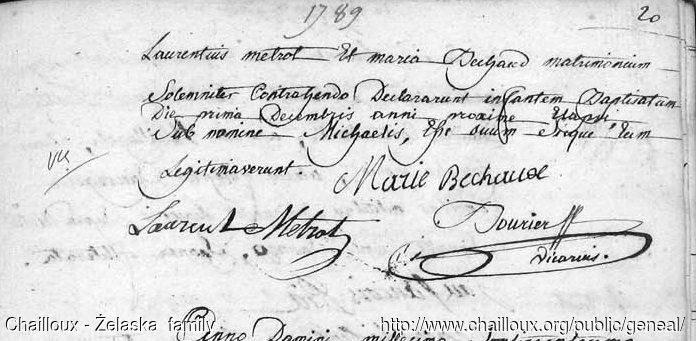 1789
20
Laurentius metrot Et maria Bechaud matrimonium
Solemniter Contrahendo Declararunt infantem Baptisatum
Die prima Decembris anni proxime Elapsi
Sub nomine Michaelis, Esse Suum Eumque
Legitimaverunt.
Marie Bechaud
Laurent Metrot
Bourier
vicarius.
Anno Domini millesimo
Chailloux - Želaska family
http://www.chailloux.org/public/geneal/